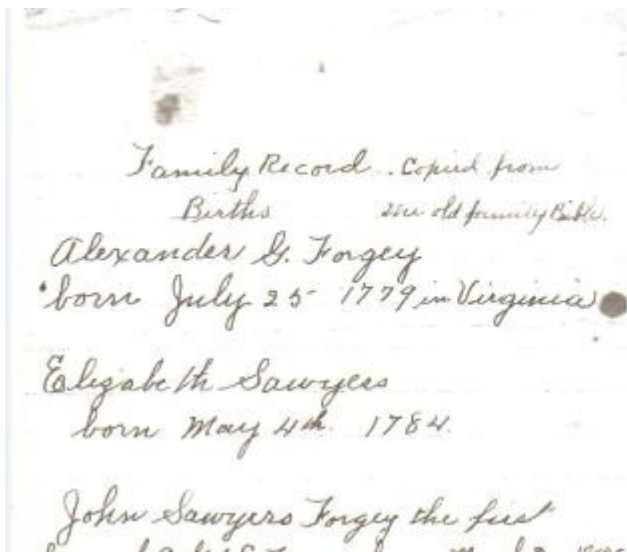 Family Record. Copied from
Births the old family Bible.
Alexander G. Forgey
born July 25 1779 in Virginia
Elizabeth Sawyers
born May 4th 1784.
John Sawyers Forgey the first